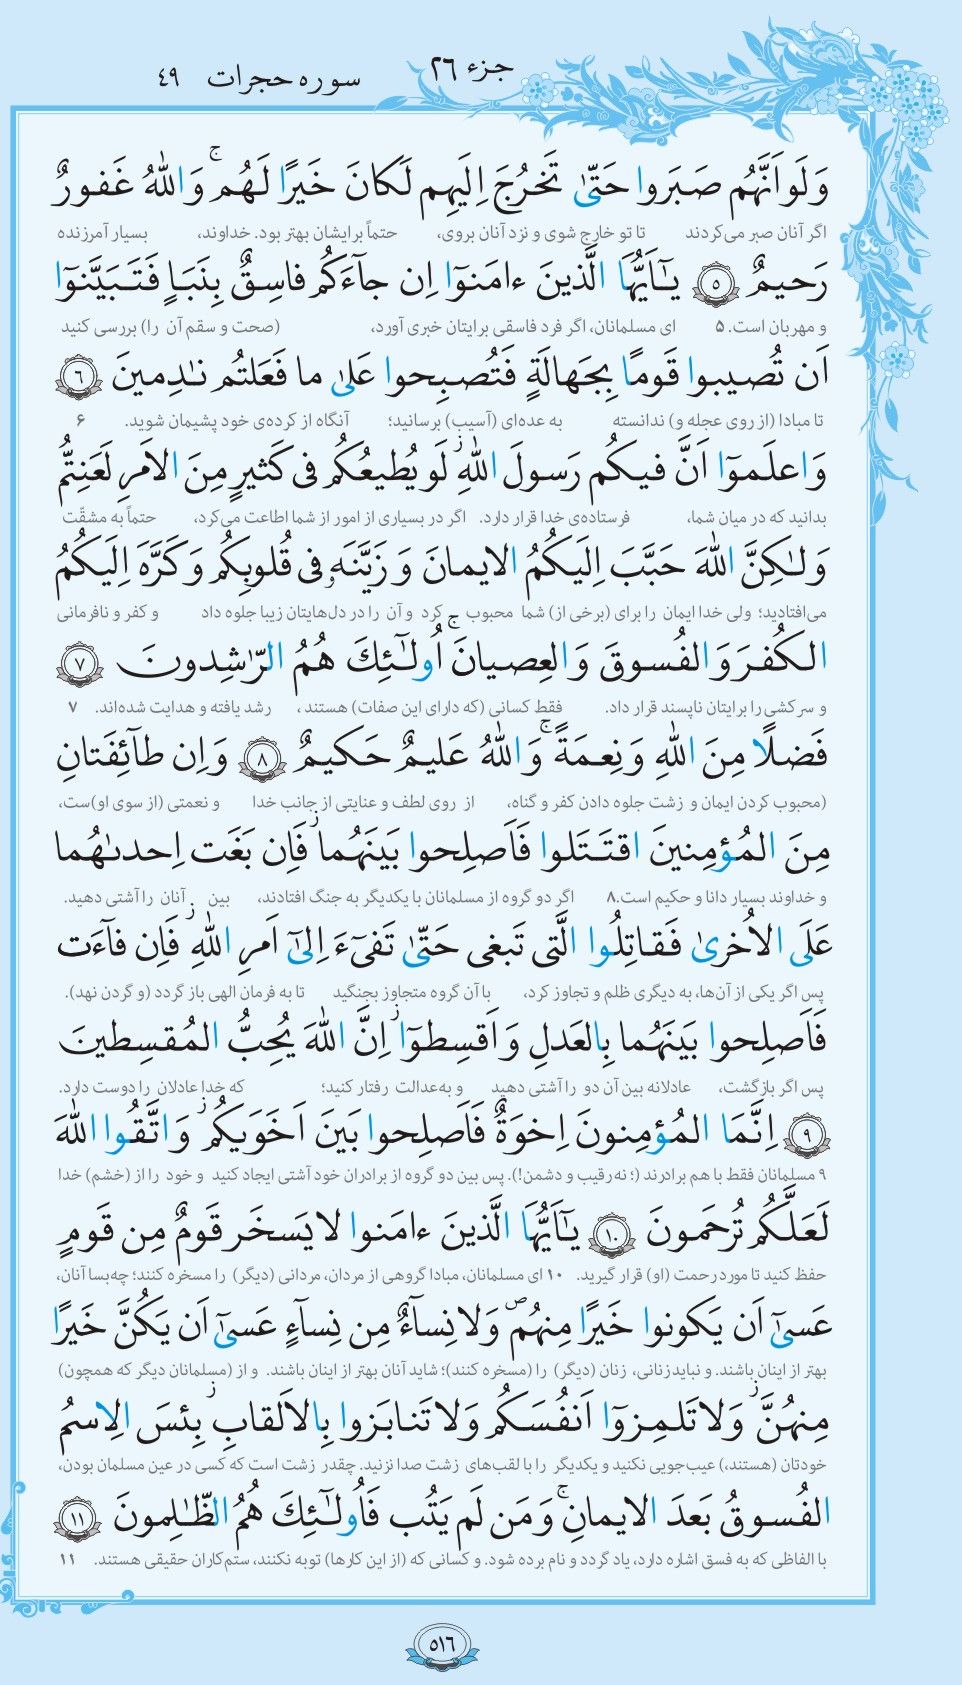 جزء ٢٦
سوره حجرات ٤٩
وَلَو اَنَّهُم صَبَروا حَتّىٰ تَخرُجَ اِلَيهِم لَكانَ خَيرًا لَهُم ۚ وَاللّٰهُ غَفورٌ
اگر آنان صبر می‌کردند تا تو خارج شوی و نزد آنان بروی، حتماً برایشان بهتر بود. خداوند، بسیار آمرزنده
رَحيمٌ ٥ يٰٓاَيُّهَا الَّذينَ ءامَنوٓا اِن جآءَكُم فاسِقٌ بِنَبَاٍ فَتَبَيَّنوٓا
و مهربان است. ۵ ای مسلمانان، اگر فرد فاسقی برایتان خبری آورد، (صحت و سقم آن را) بررسی کنید
اَن تُصيبوا قَومًا بِجَهالَةٍ فَتُصبِحوا عَلىٰ ما فَعَلتُم نٰدِمينَ ٦
تا مبادا (از روی عجله و) ندانسته به عده‌ای (آسیب) برسانید؛ آنگاه از کرده‌ی خود پشیمان شوید. ۶
وَاعلَموٓا اَنَّ فيكُم رَسولَ اللّٰهِ ۚ لَو يُطيعُكُم فى كَثيرٍ مِنَ الاَمرِ لَعَنِتُّم
بدانید که در میان شما، فرستاده‌ی خدا قرار دارد. اگر در بسیاری از امور از شما اطاعت می‌کرد، حتماً به مشقّت
وَلٰكِنَّ اللّٰهَ حَبَّبَ اِلَيكُمُ الايمانَ وَ زَيَّنَهٗ فى قُلوبِكُم وَ كَرَّهَ اِلَيكُمُ
می‌افتادید؛ ولی خدا ایمان را برای (برخی از) شما محبوب کرد و آن را در دل‌هایتان زیبا جلوه داد و کفر و نافرمانی
الكُفرَ وَالفُسوقَ وَالعِصيانَ ۚ اُولٰٓئِكَ هُمُ الرّٰشِدونَ ٧
و سرکشی را برایتان ناپسند قرار داد. فقط کسانی (که دارای این صفات) هستند، رشد یافته و هدایت شده‌اند. ۷
فَضلًا مِنَ اللّٰهِ وَ نِعمَةً ۚ وَاللّٰهُ عَليمٌ حَكيمٌ ٨ وَ اِن طآئِفَتانِ
(محبوب کردن ایمان و زشت جلوه دادن کفر و گناه، از روی لطف و عنایتی از جانب خدا و نعمتی (از سوی او)ست،
مِنَ المُؤمِنينَ اقتَتَلوا فَاَصلِحوا بَينَهُما ۖ فَاِن بَغَت اِحدىٰهُما
و خداوند بسیار دانا و حکیم است.۸ اگر دو گروه از مسلمانان با یکدیگر به جنگ افتادند، بین آنان را آشتی دهید.
عَلَى الاُخرىٰ فَقاتِلُوا الَّتى تَبغى حَتّىٰ تَفىٓءَ اِلىٰٓ اَمرِ اللّٰهِ ۚ فَاِن فآءَت
پس اگر یکی از آن‌ها، به دیگری ظلم و تجاوز کرد، با آن گروه متجاوز بجنگید تا به فرمان الهی باز گردد (و گردن نهد).
فَاَصلِحوا بَينَهُما بِالعَدلِ وَ اَقسِطوٓا ۖ اِنَّ اللّٰهَ يُحِبُّ المُقسِطينَ
پس اگر بازگشت، عادلانه بین آن دو را آشتی دهید و به‌عدالت رفتار کنید؛ که خدا عادلان را دوست دارد.
٩ اِنَّمَا المُؤمِنونَ اِخوَةٌ فَاَصلِحوا بَينَ اَخَوَيكُم ۚ وَاتَّقُوا اللّٰهَ
۹ مسلمانان فقط با هم برادرند (؛ نه رقیب و دشمن!). پس بین دو گروه از برادران خود آشتی ایجاد کنید و خود را از (خشم) خدا
لَعَلَّكُم تُرحَمونَ ١٠ يٰٓاَيُّهَا الَّذينَ ءامَنوا لا يَسخَر قَومٌ مِن قَومٍ
حفظ کنید تا مورد رحمت (او) قرار گیرید. ۱۰ ای مسلمانان، مبادا گروهی از مردان، مردانی (دیگر) را مسخره کنند؛ چه‌بسا آنان،
عَسىٰٓ اَن يَكونوا خَيرًا مِنهُم ۖ وَلا نِسآءٌ مِن نِسآءٍ عَسىٰٓ اَن يَكُنَّ خَيرًا
بهتر از اینان باشند. و نباید زنانی، زنان (دیگر) را (مسخره کنند)؛ شاید آنان بهتر از اینان باشند. و از (مسلمانان دیگر که همچون)
مِنهُنَّ ۖ وَلا تَلمِزوٓا اَنفُسَكُم وَلا تَنابَزوا بِالاَلقابِ ۖ بِئسَ الاِسمُ
خودتان (هستند،) عیب‌جویی نکنید و یکدیگر را با لقب‌های زشت صدا نزنید. چقدر زشت است که کسی در عین مسلمان بودن،
الفُسوقُ بَعدَ الايمانِ ۚ وَ مَن لَم يَتُب فَاُولٰٓئِكَ هُمُ الظّٰلِمونَ ١١
با الفاظی که به فسق اشاره دارد، یاد گردد و نام برده شود. و کسانی که (از این کارها) توبه نکنند، ستم‌کاران حقیقی هستند. ۱۱
٥١٦